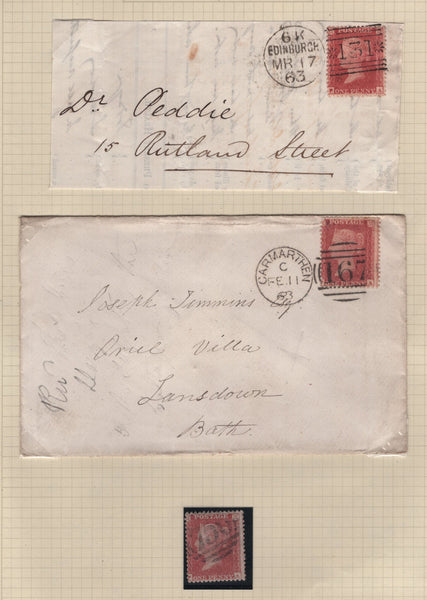 6 K
EDINBURGH
MR 17
63
POSTAGE
131
ONE PENNY
Dr. Peddie
15 Rutland Street
CARMARTHEN
C
FE 11
63
POSTAGE
167
Joseph Timmins Esq
Oriel Villa
Lansdown
Bath
POSTAGE
ONE PENNY